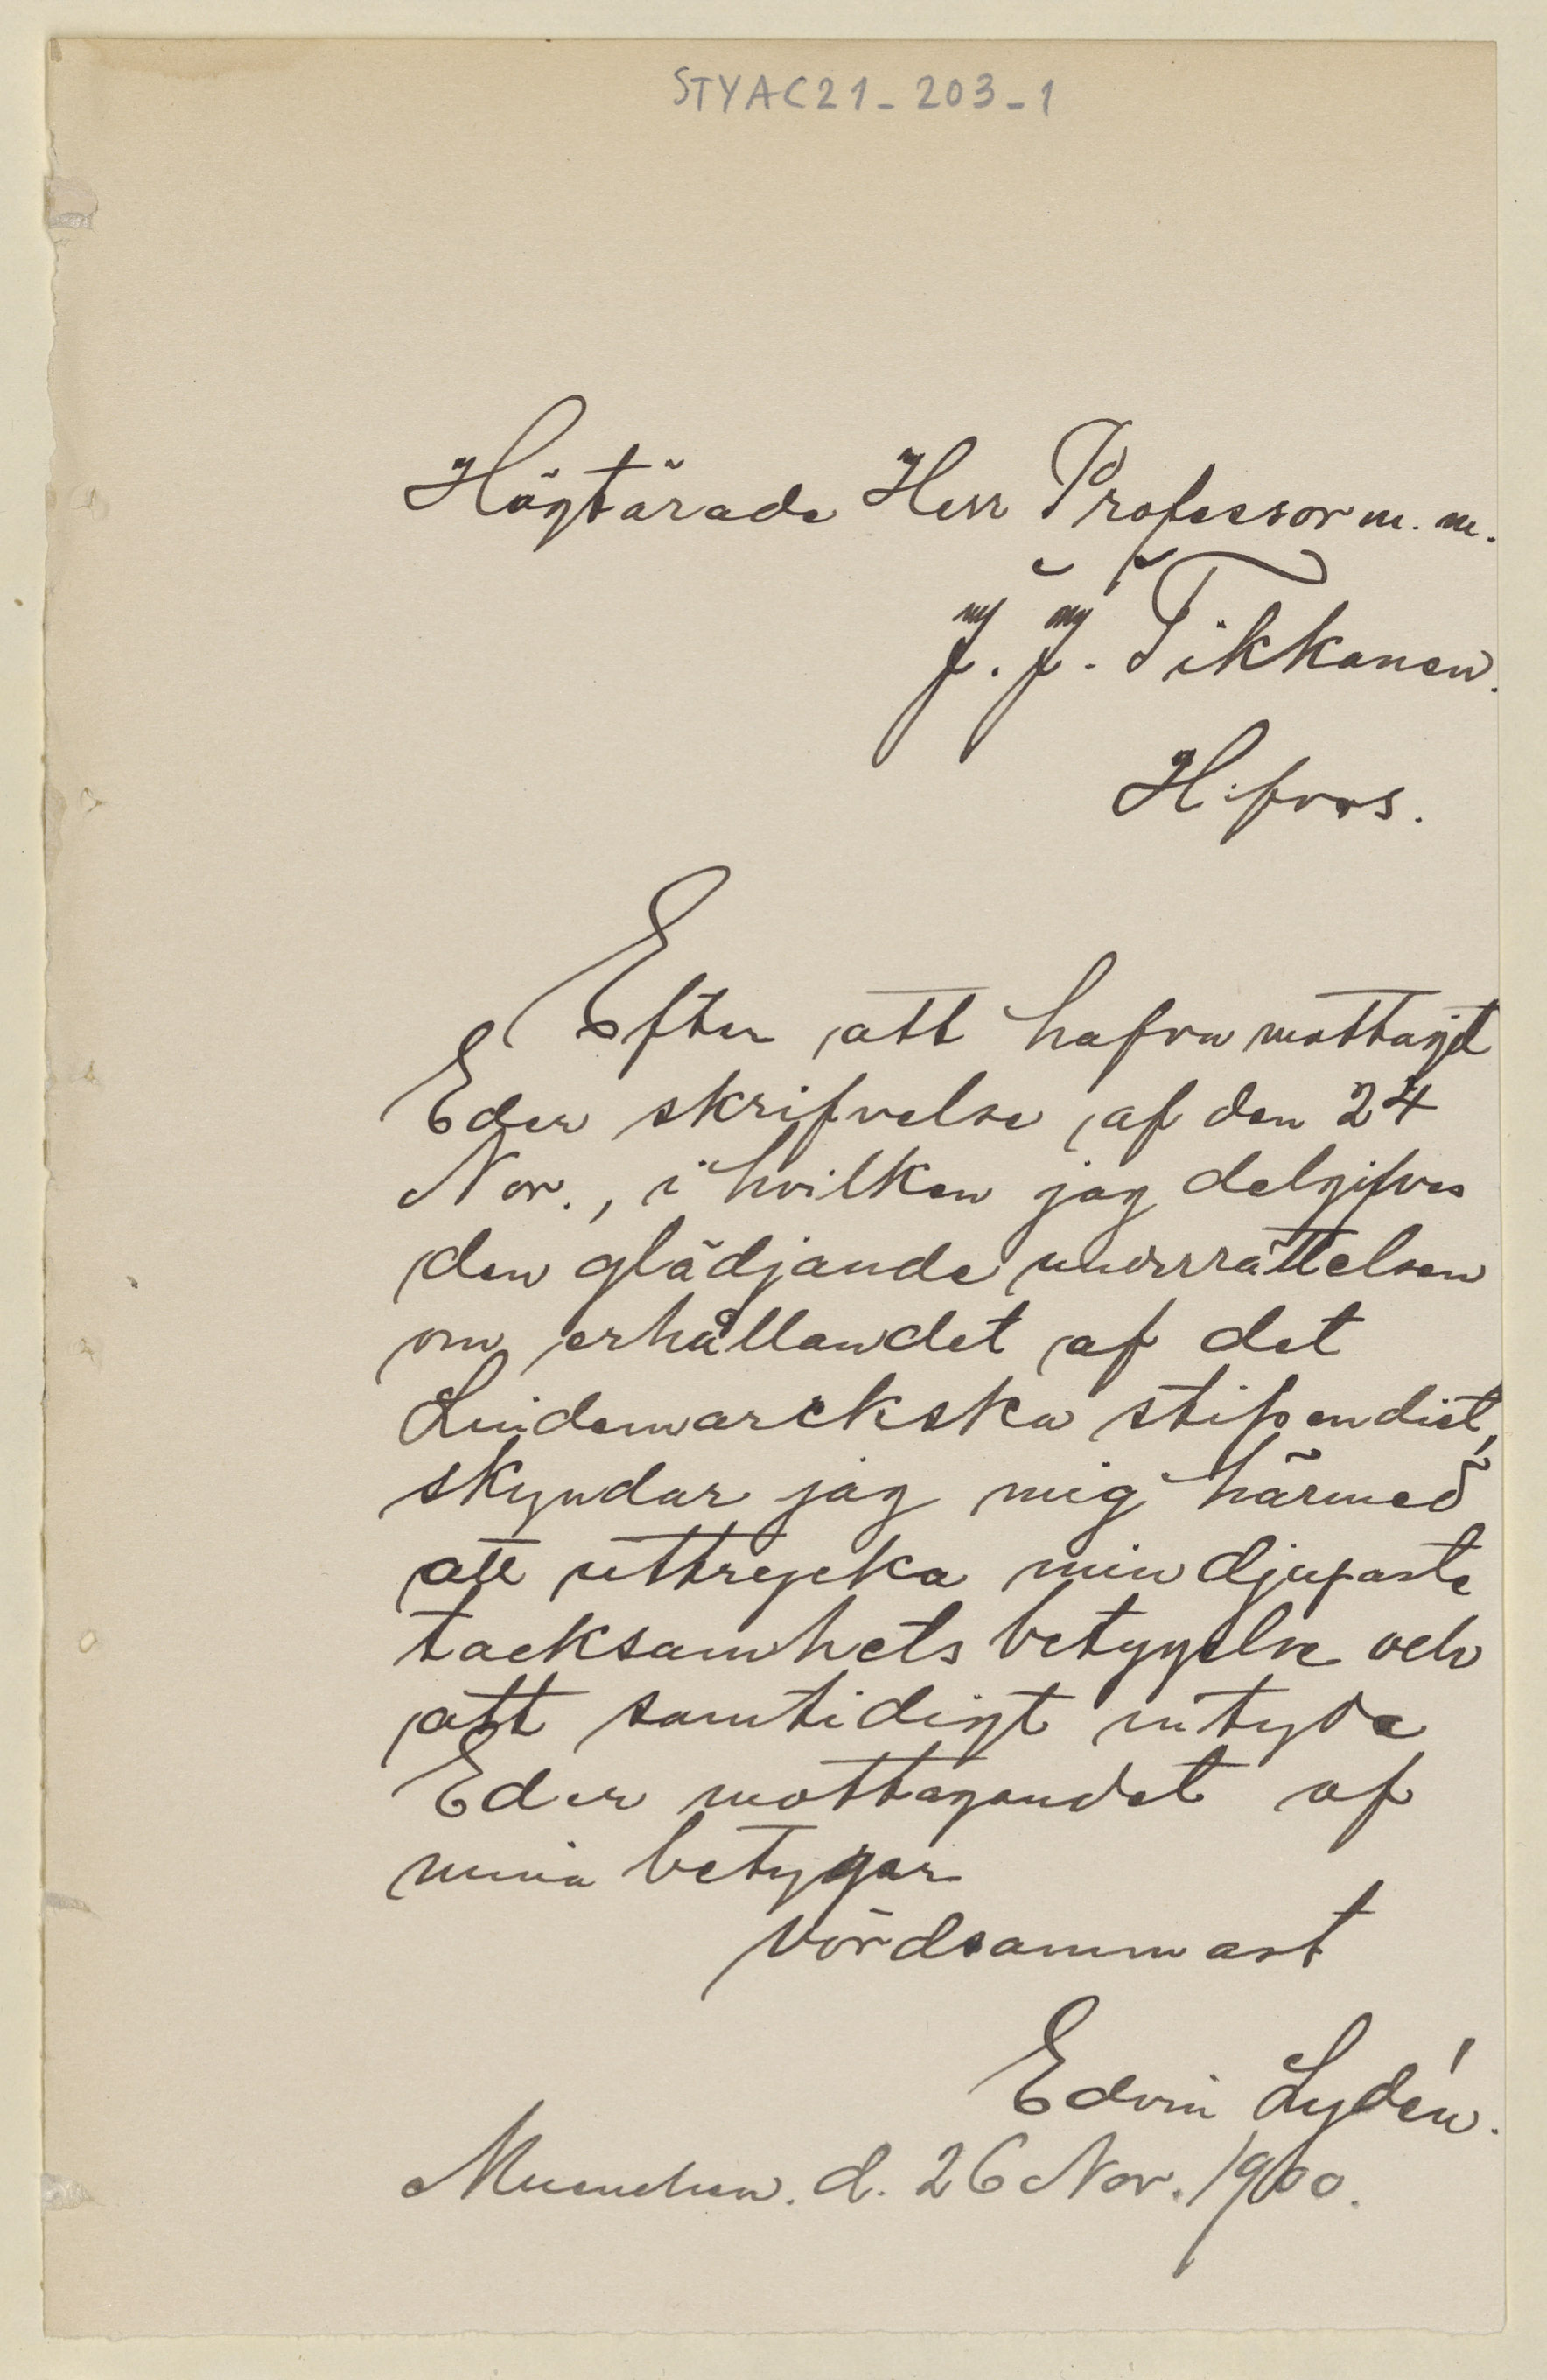 STYAC21-203-1
Högtärade Herr Professor m. m.
J. J. Tikkanen.
H:fors.
Efter att hafva mottagit
Eder skrifvelse af den 24
Nov., i hvilken jag delgifves
den glädjande underrättelsen
om erhållandet af det
Lindemarckska stipendiet,
skyndar jag mig härmed
att uttrycka min djupaste
tacksamhets betygelse och
att samtidigt intyda
Eder mottagandet af
mina betygar
vördsammast
Edvin Lydén.
Muenchen. d. 26 Nov. 1900.